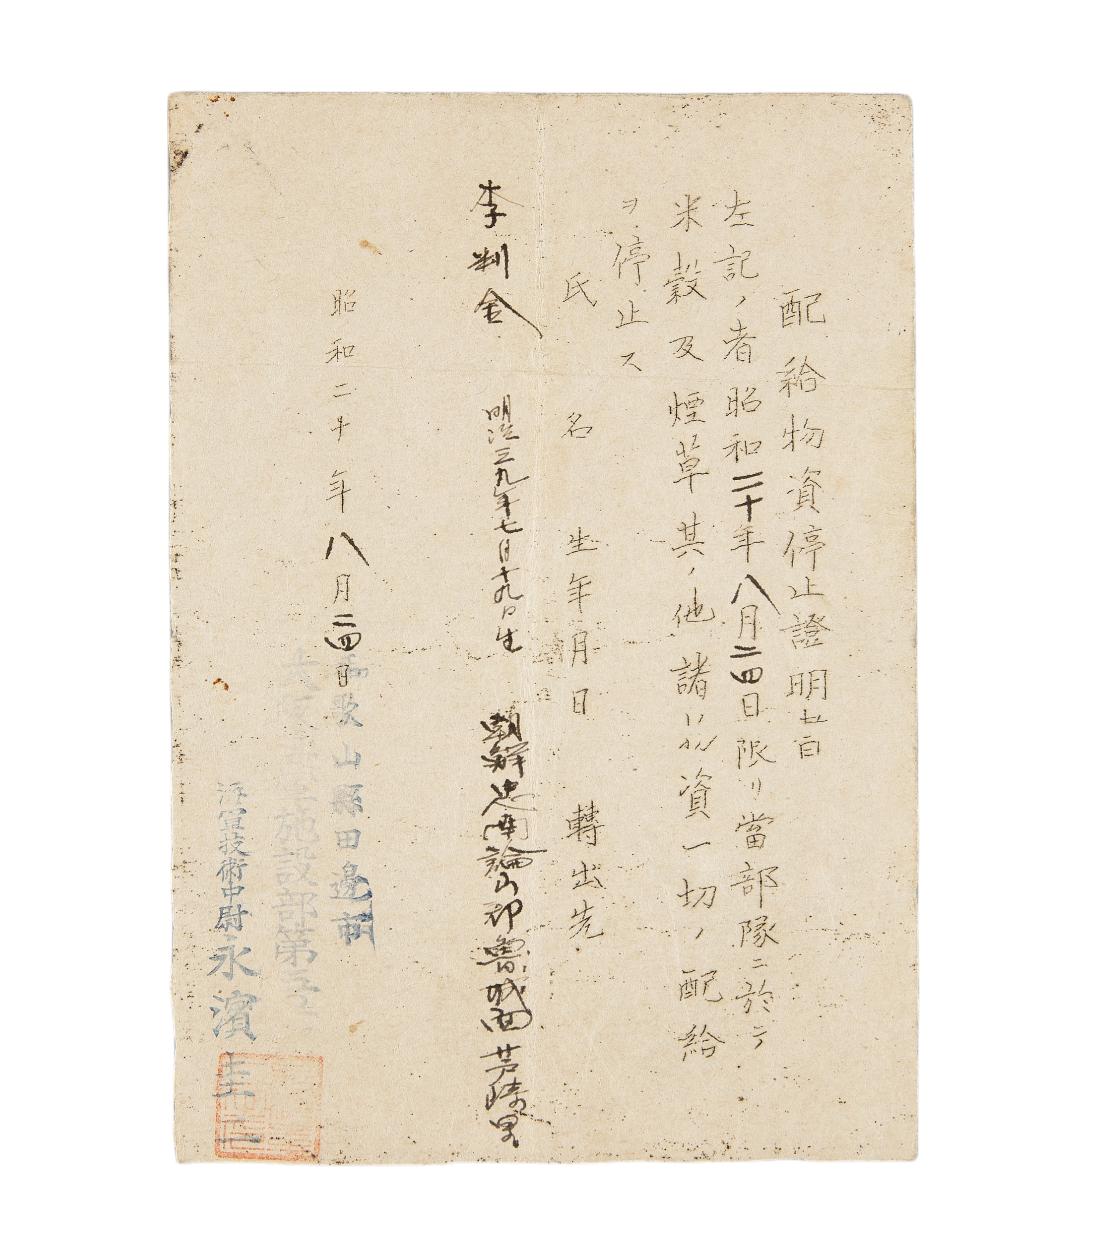 配給物資停止證明書
左記ノ者昭和二十年八月二四日限リ當部隊ニ於テ
米穀及煙草其ノ他諸物資一切ノ配給
ヲ停止ス
氏名 生年月日 轉出先
李判金 明治三九年七月十九日生 朝鮮忠南論山郡魯城面芦峙里
昭和二十年八月二四日
和歌山縣田邊市
施設部第三
海軍技術中尉 永濱